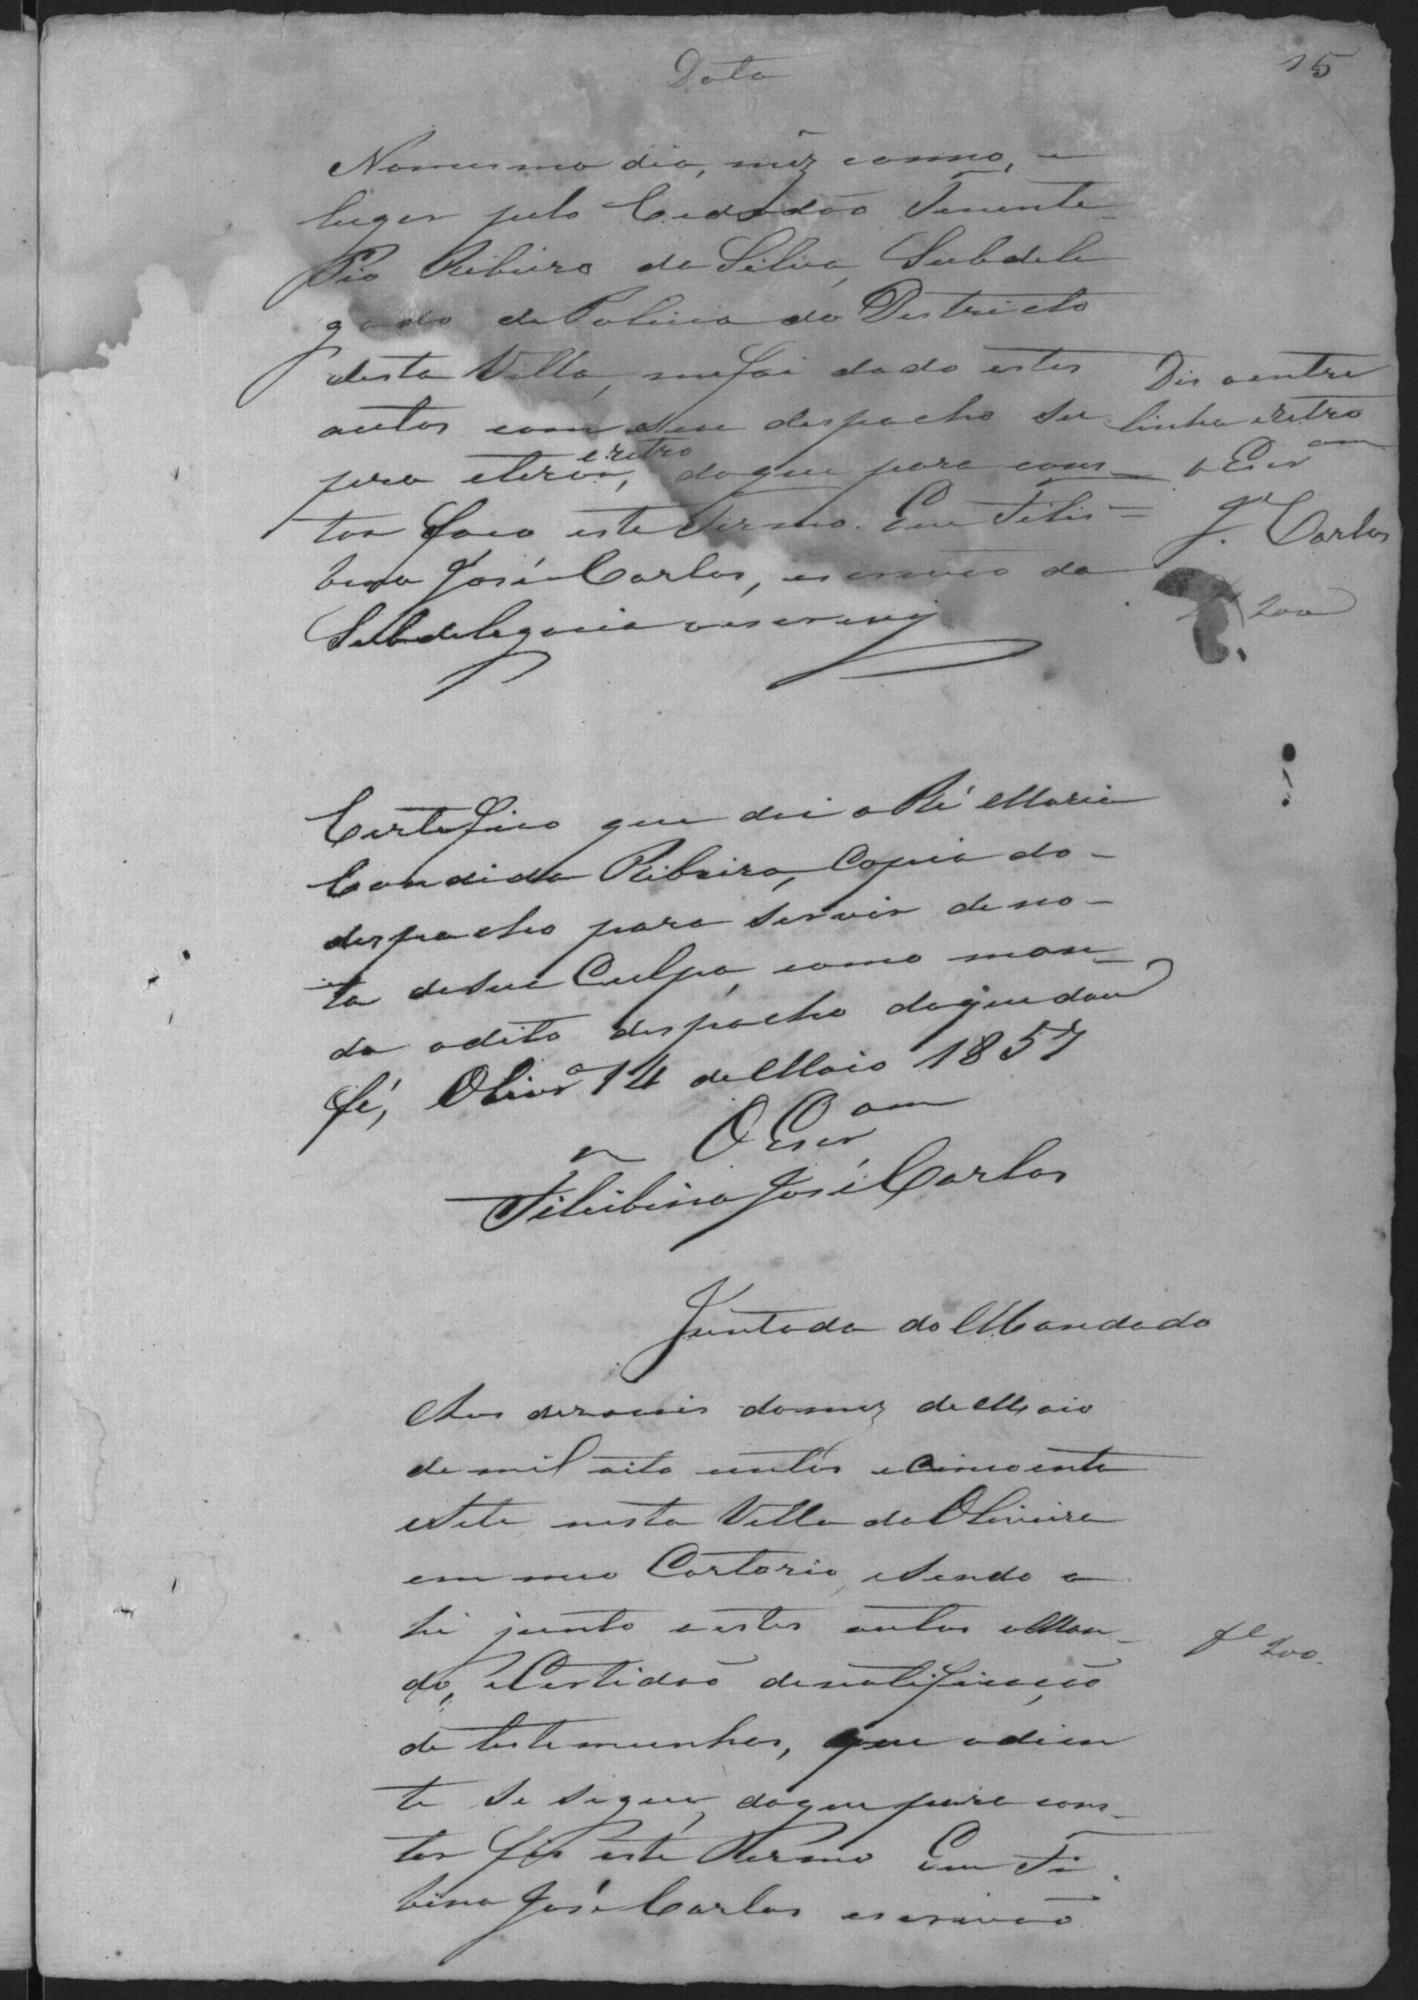 15
Data
No mesmo dia, mez e anno, e
lugar pelo Cidadão Tenente
Pio Ribeiro da Silva, Subdele
gado de Policia do Districto
desta Villa, me foi dado estes
autos com seu despacho su
pera e retro, do que para cons-
tar faço este Termo. Eu
José Carlos, escrivão da
Subdelegacia o escrevy
Diz a entre
linha e retro
o Escr.am
J. Carlos
200
Certefico que dei a Ré Maria
Candida Ribeiro, Copia do-
despacho para servir de no-
ta de sue Culpa, como man-
da o dito despacho do que dou
fé, Olivr.a 14 de Maio 1857
O Escr.am
José Carlos
Juntada do Mandado
Aos deraseis do mez de Maio
de mil oito centos e cincoenta
e sete nesta Villa da Oliveira
em meu Cartorio, e sendo a
hi junto a estes autos o Man-
do, e Certidão de notificação
de testemunhas, que adien
te se segue, do que para cons-
tar fis este Termo Eu
José Carlos escrivão
200.